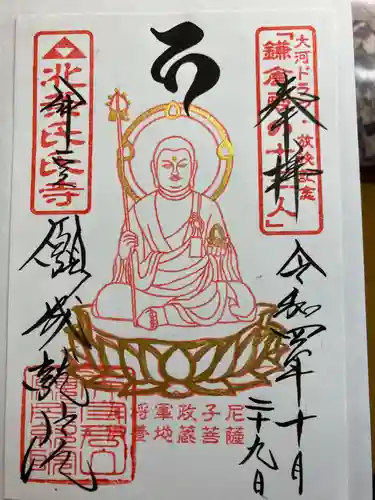 大河ドラマ・放映記念
「鎌倉殿の十三人」
奉拝
令和四年十月
二十九日
北条氏氏寺
願成就院
将軍政子尼
養地蔵菩薩